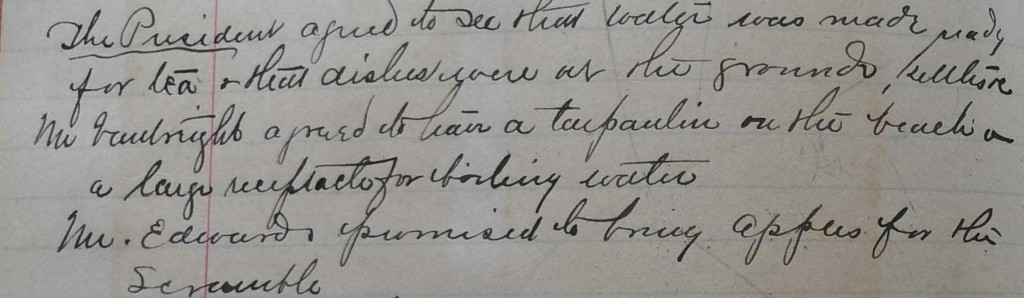 The President agreed to see that water was made ready
for tea & that dishes were at the grounds,
Mr Vautright agreed to have a tarpaulin on the beach &
a large receptacle for boiling water
Mr. Edwards promised to bring apples for the
Scramble